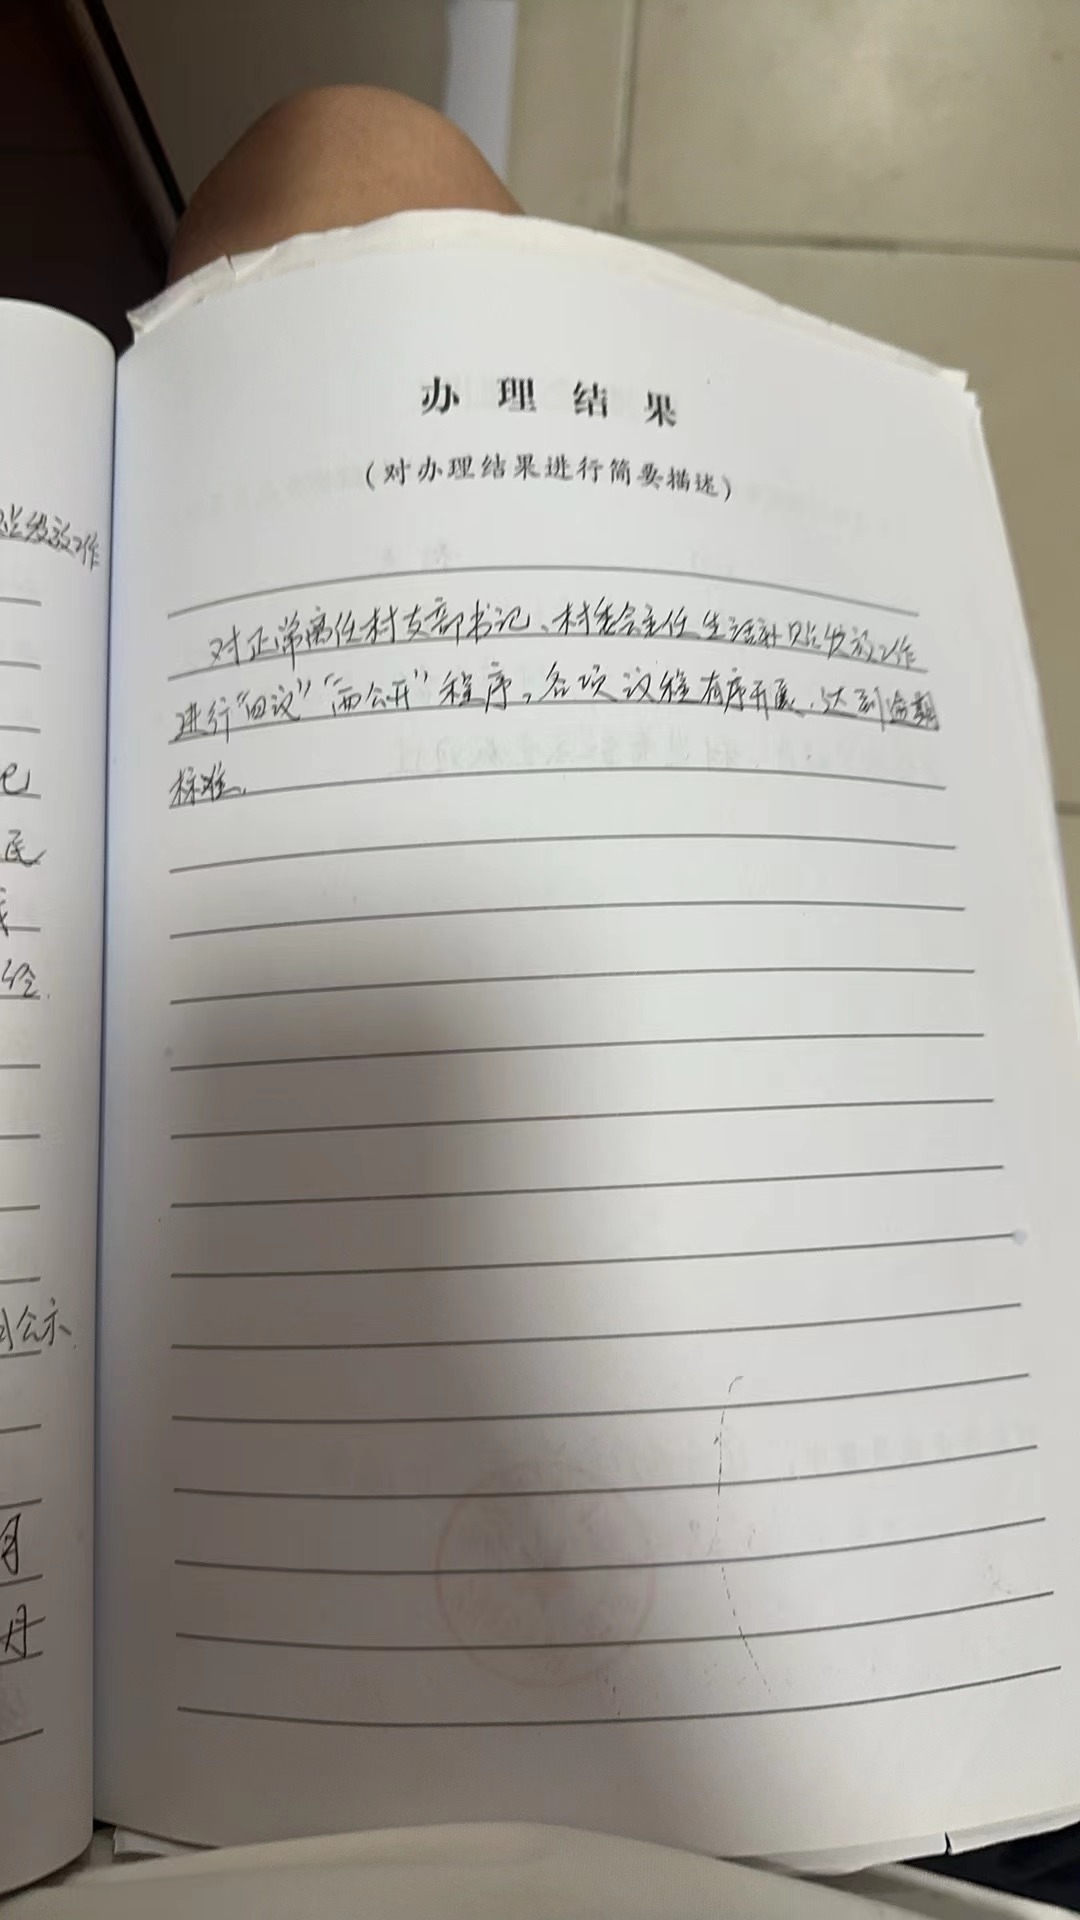 办理结果
(对办理结果进行简要描述)
对正常离任村支部书记、村委会主任生活补贴发放工作
进行“四议”“两公开”程序，各项议程有序开展，达到
标准。
贴发放工作
民
经.
公示
月
月